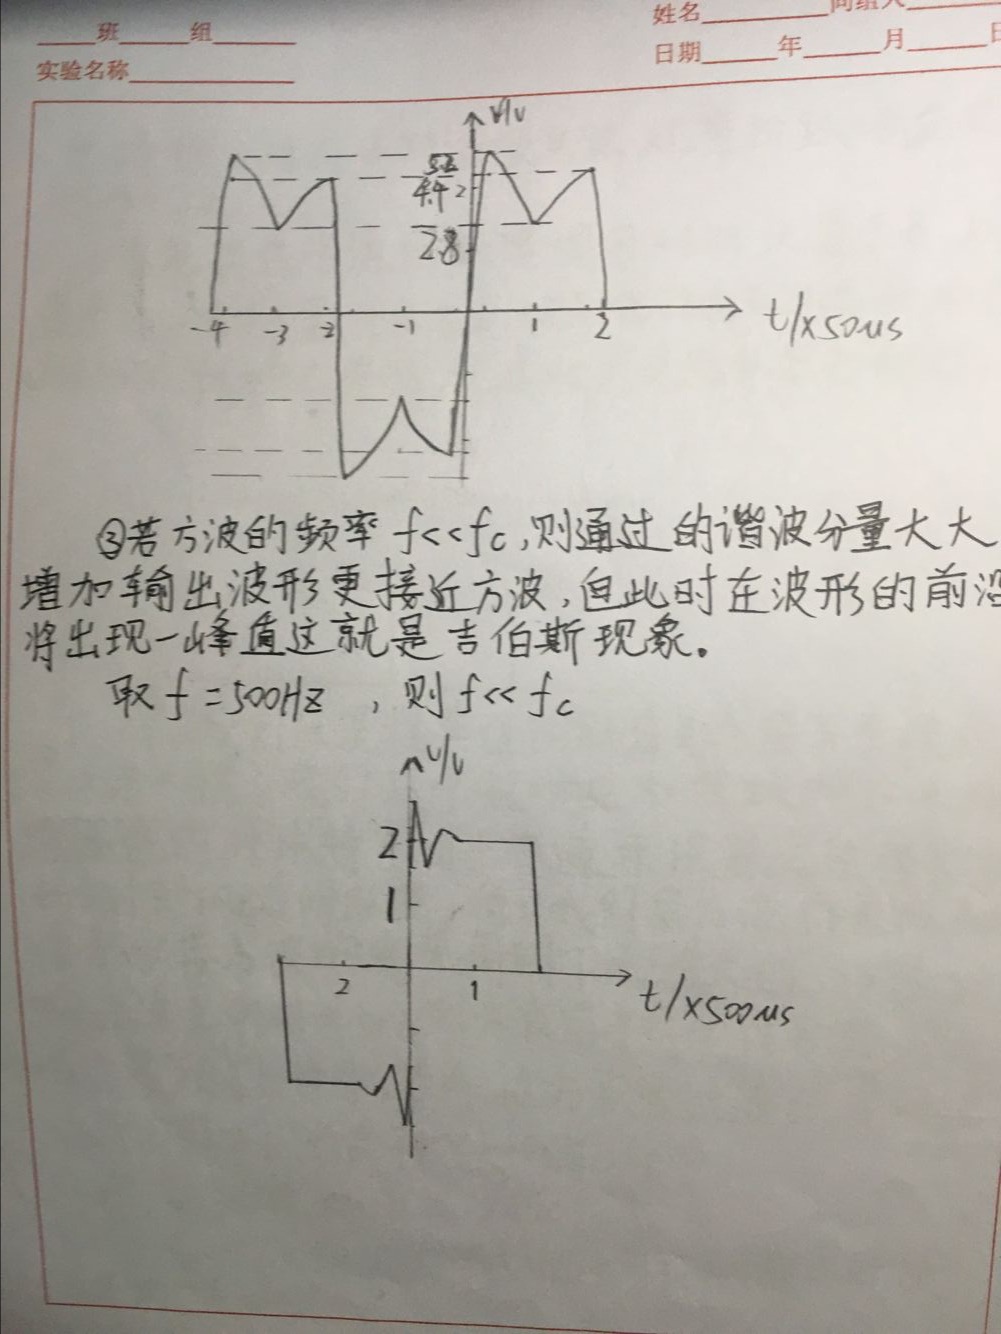 姓名______同组人
____班____组____
日期____年____月____日
实验名称________
V/V
5.2
4.4 2
2.8
-4 -3 -2 -1 1 2
t/×50us
③若方波的频率 f<<fc,则通过的谐波分量大大
增加输出波形更接近方波,但此时在波形的前沿
将出现一峰值这就是吉伯斯现象。
取 f=500Hz ,则 f<<fc
V/V
2
1
2 1
t/×500us